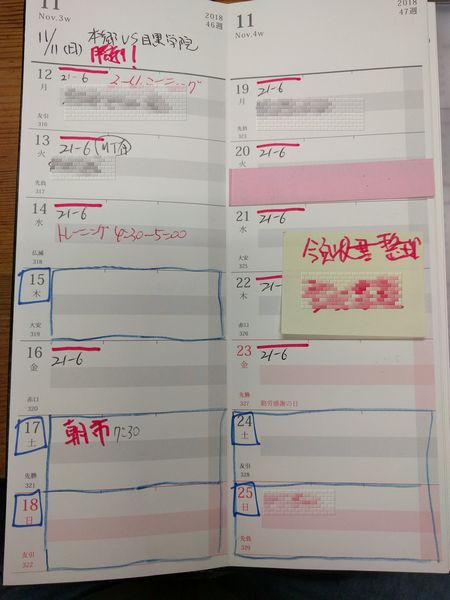 11
Nov.3w
2018
46週
11/11(日) 本郷VS目黒学院
勝利!
12
月
友引
316
21-6 ミーティング
13
火
先負
317
21-6
14
水
仏滅
318
21-6
トレーニング 4:30-5:00
15
木
大安
319
16
金
赤口
320
21-6
17
土
先勝
321
朝市 7:30
18
日
友引
322
11
Nov.4w
2018
47週
19
月
先負
323
21-6
20
火
21-6
21
水
大安
325
21-6
今宮
整理
22
木
赤口
326
21-
23
金
先勝
327
21-6
勤労感謝の日
24
土
友引
328
25
日
先負
329